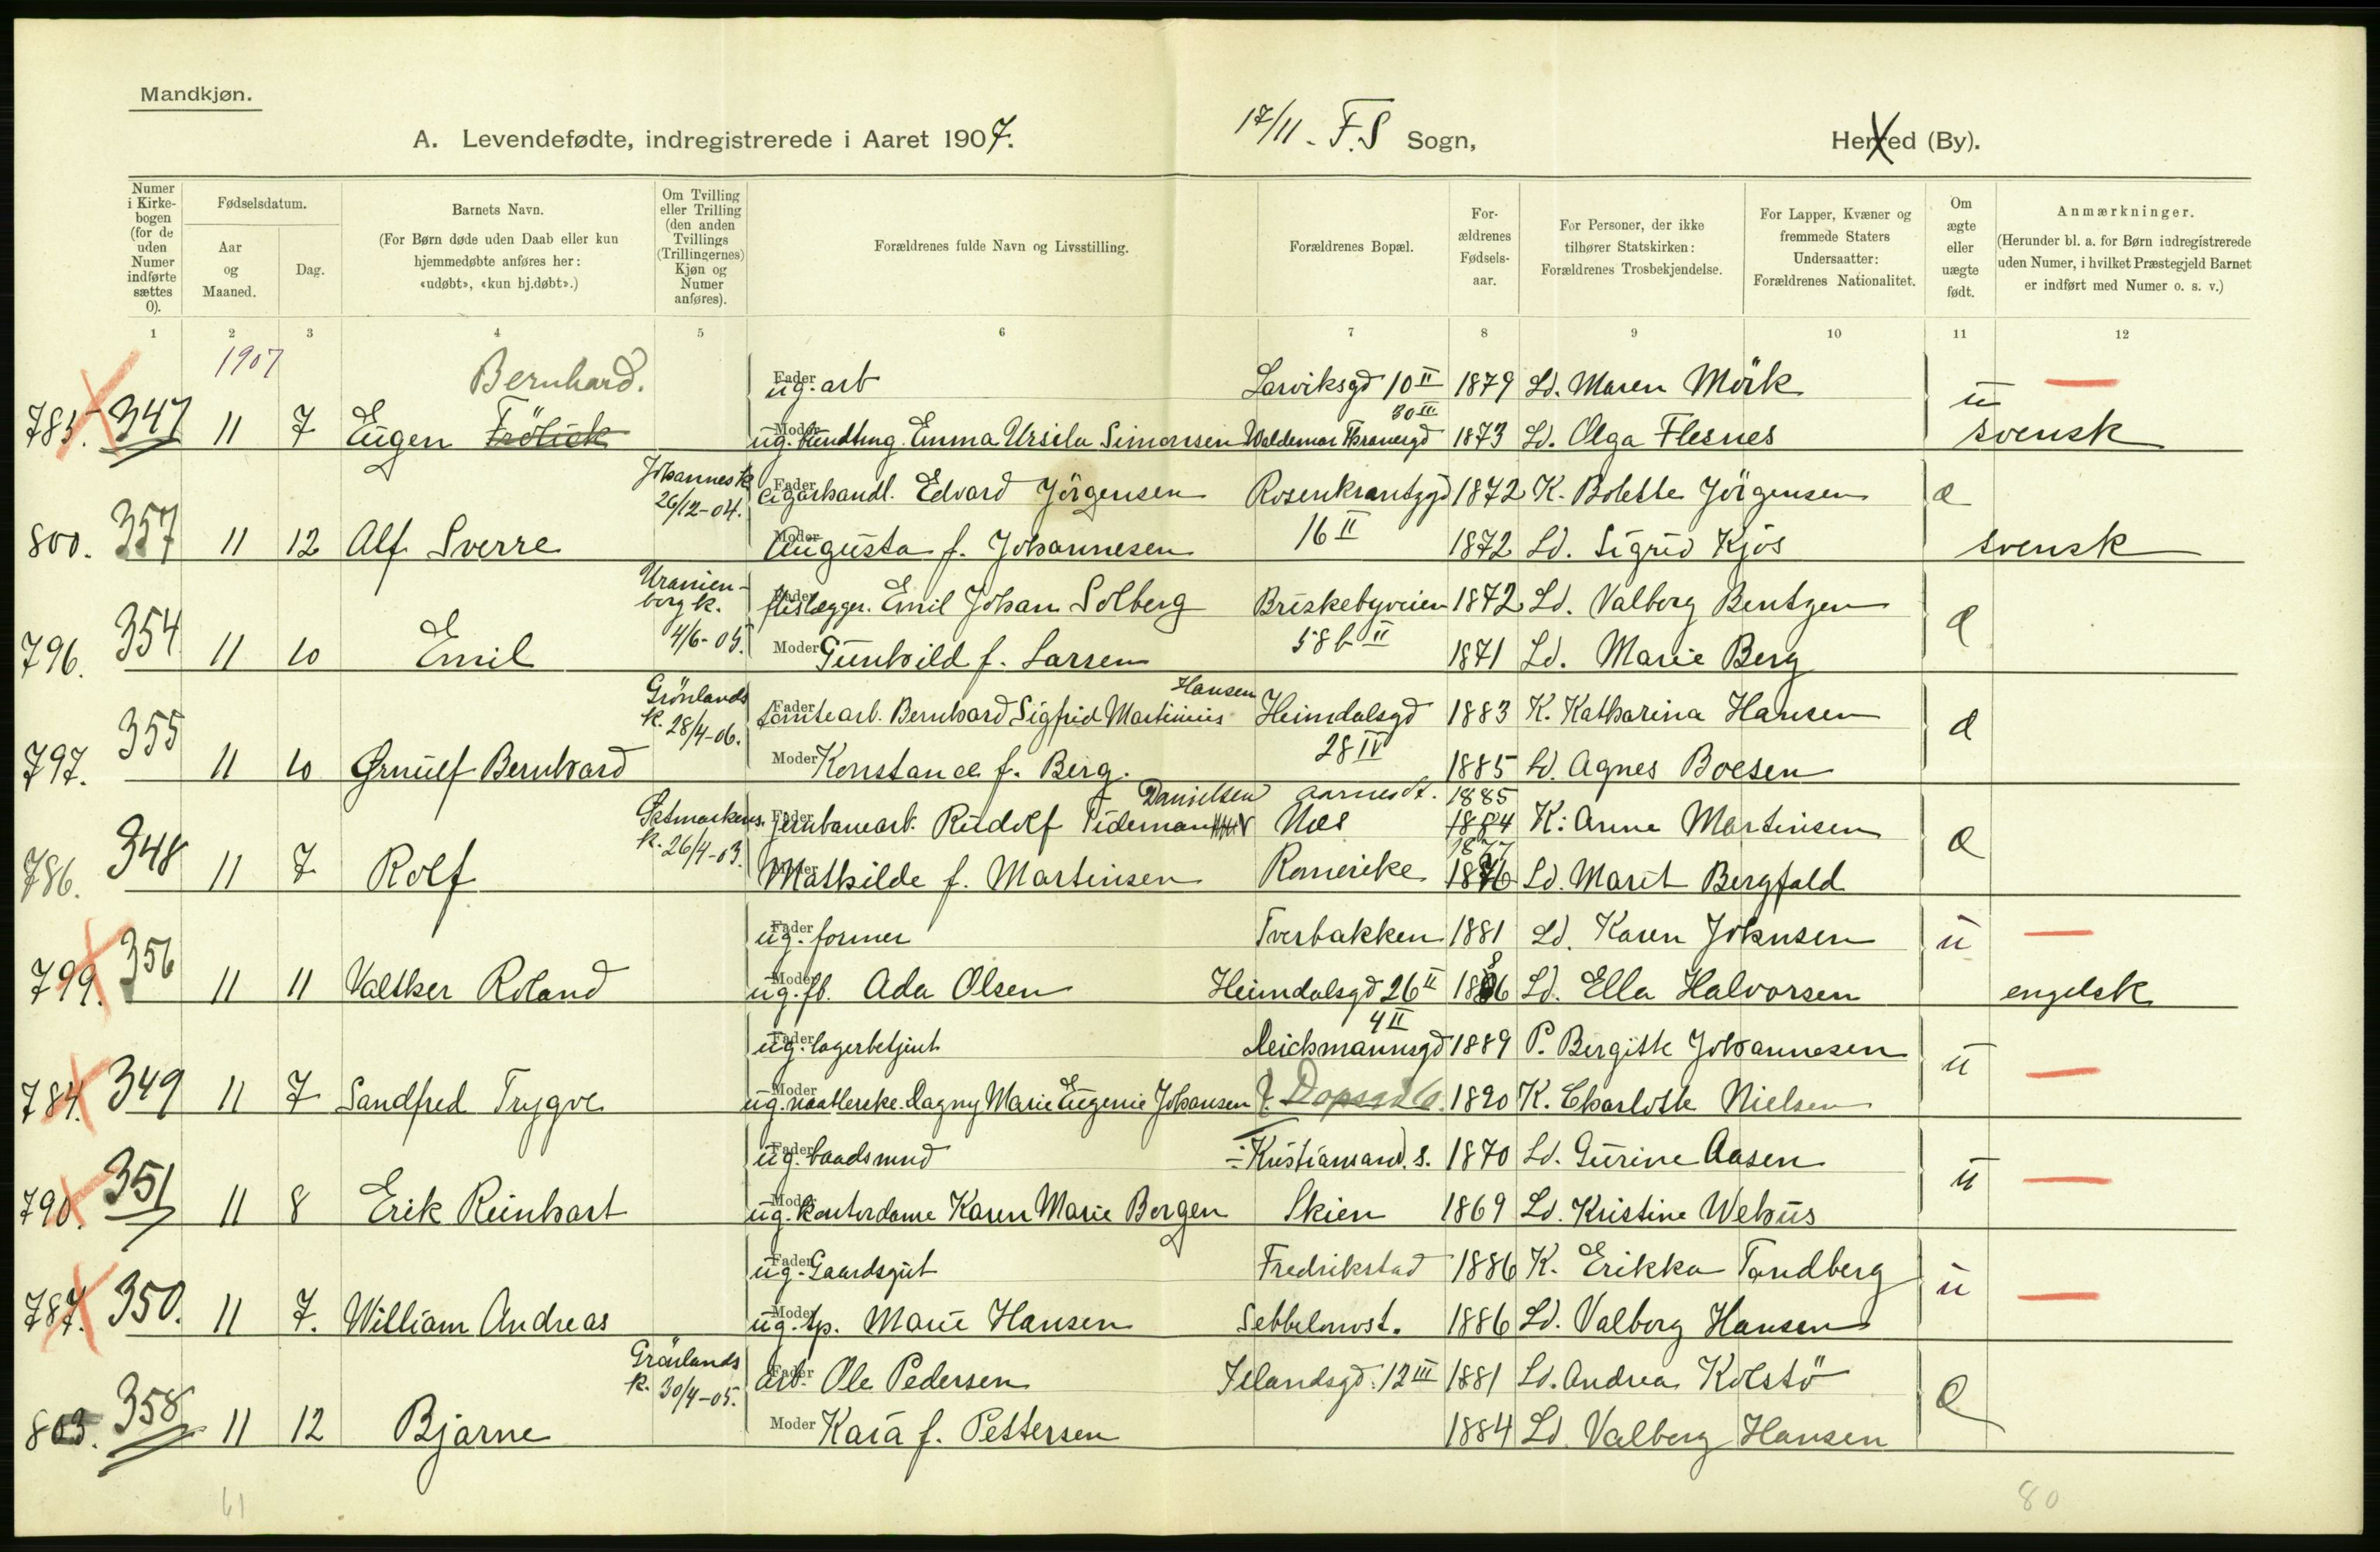 Mandkjøn.
A. Levendefødte, indregistrerede i Aaret 1907. 17/11 - F.S Sogn, Herred (By).
Numer i Kirke-bogen (for de uden Numer indførte sættes 0).
Fødselsdatum.
Aar og Maaned.
Dag.
Barnets Navn.
(For Børn døde uden Daab eller kun hjemmedøbte anføres her: «udøbt», «kun hj.døbt».)
Om Tvilling eller Trilling (den anden Tvillings (Trillingernes) Kjøn og Numer anføres).
Forældrenes fulde Navn og Livsstilling.
Forældrenes Bopæl.
For-ældrenes Fødsels-aar.
For Personer, der ikke tilhører Statskirken: Forældrenes Trosbekjendelse.
For Lapper, Kvæner og fremmede Staters Undersaatter: Forældrenes Nationalitet.
Om ægte eller uægte født.
Anmærkninger.
(Herunder bl. a. for Børn indregistrerede uden Numer, i hvilket Præstegjeld Barnet er indført med Numer o. s. v.)
1 2 3 4 5 6 7 8 9 10 11 12
1907
Bernhard. Fader ug. arb Larviksgd 10 II 1879 Ld. Maren Mörk u —
30 III
785. 347 11 7 Eugen Frölick Moder ug. Emma Ursila Simonsen Waldemar Thranesgd 1873 Ld. Olga Flesnes svensk
Johannes k. 26/12-04. Fader cigarhandl. Edvard Jörgensen Rosenkrantzgd 1872 K. Bolette Jörgensen æ
800. 357 11 12 Alf Sverre Moder Augusta f. Johannesen 16 II 1872 Ld. Sigrid Kjös svensk
Uranienborg k. 4/6-05. Fader flislægger. Emil Johan Solberg Briskebyveien 1872 Ld. Valborg Bentzen æ
796. 354 11 10 Emil Moder Gunhild f. Larsen 58 b II 1871 Ld. Marie Berg
Hansen
Grönlands k. 28/4-06. Fader tomtearb. Bernhard Sigfrid Martinius Heimdalsgd 1883 K. Katharina Hansen æ
797. 355 11 10 Ørnulf Bernhard Moder Konstance f. Berg. 28 IV 1885 Ld. Agnes Boesen
Danielsen Aarnes st. 1885
Østmarkens. k. 26/4-03. Fader jernbanearb. Rudolf Tideman Næs 1884 K: Anne Martinsen æ
1877
786. 348 11 7 Rolf Moder Mathilde f. Martinsen Romerike 1876 Ld. Marit Bergfald
Fader ug. former Tverbakken 1881 Ld. Karen Johnsen u —
799. 356 11 11 Valther Roland Moder ug. fb. Ada Olsen Heimdalsgd 26 II 1886 Ld. Ella Halvorsen engelsk
4 II
Fader ug. lagerbetjent Deichmannsgd 1889 P. Birgitte Johannesen u —
784. 349 11 7 Sandfred Trygve Moder ug. naatlerske. Dagny Marie Eugenie Johansen 1890 K. Charlotte Nielsen
Fader ug. baadsmnd Kristiansand. s. 1870 Ld. Gurine Aasen u —
790. 351 11 8 Erik Reinhart Moder ug. Kontordame Karen Marie Borgen Skien 1869 Ld. Kristine Wehus
Fader ug. Gaardsgut Fredrikstad 1886 K. Erikka Tandberg u —
787. 350. 11 7. William Andreas Moder ug. tp. Marie Hansen Sebbelowst. 1886 Ld. Valborg Hansen
Grönlands k. 30/4-05. Fader arb. Ole Pedersen Jelandsgd. 12 III 1881 Ld. Andrea Kolstö æ
803. 358 11 12 Bjarne Moder Kaia f. Pettersen 1884 Ld. Valborg Hansen
61 80